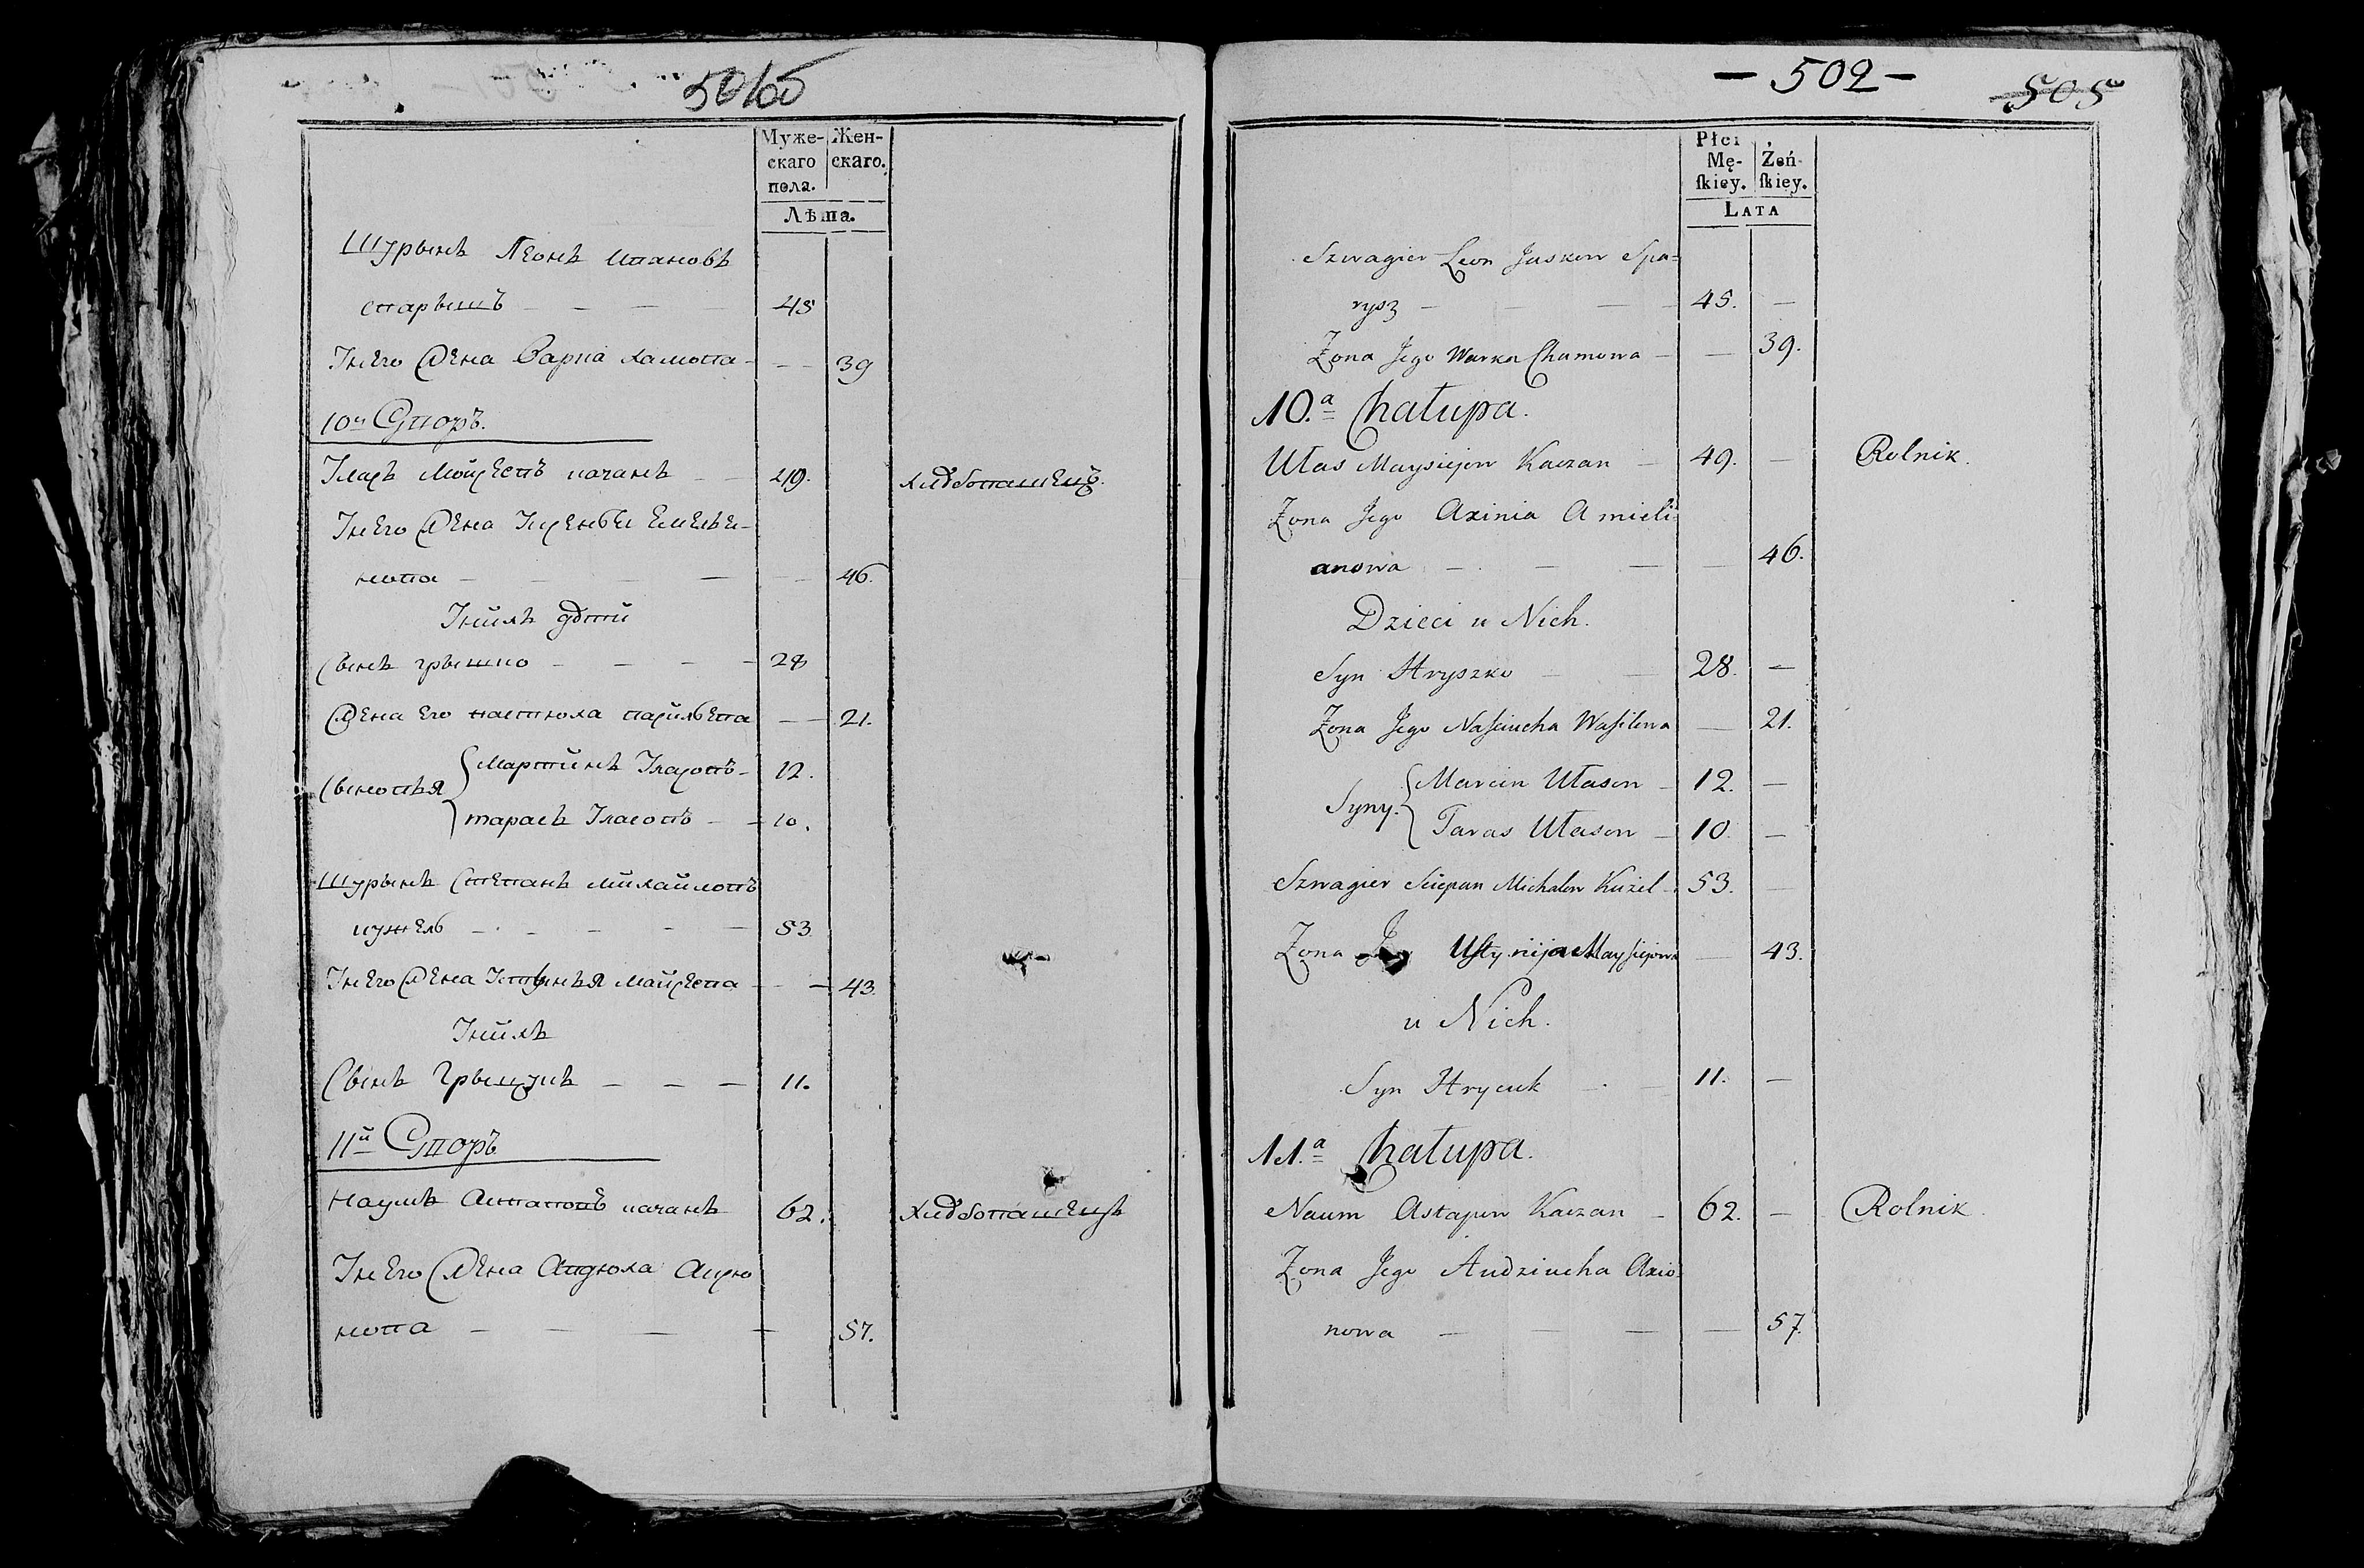 501об
Муже- Жен-
скаго скаго.
пола.
Лѣта.
Шурынъ Леонъ
старышъ — — — 45
Унего Жена Варка хамова — — 39
10й Дворъ.
Уласъ Мойсеевъ качанъ — — 49. хлѣбопашецъ.
Унего Жена Ксеньи Емельи-
нова — — — — 46.
Унихъ дѣти
Сынъ грышко — — — — 28
Жена его настюха василева — — 21.
Сыновья { Мартинъ Уласовъ — 12.
тарасъ Уласовъ — — 10.
Шурынъ Степанъ михайловъ
кужель — — — — 53
Унего Жена Устынья майсева — — 43.
Унихъ
Сынъ Грыцукъ — — — 11.
11й Дворъ
Наумъ Астаповъ качанъ 62. Хлѣбопашецъ
Унего Жена Авдюха Аксю
нова — — — — 57.
— 502 —
505
Płci
Mę- Żeń-
ſkiey. ſkiey.
LATA
Szwagier Leon Juskow Spa=
rysz — — — 45. —
Żona Jego Warka Chamowa — — 39.
10.a Chałupa.
Ułas Maysiejow Kaczan — 49. — Rolnik.
Żona Jego Axinia Amieli=
anowa — — — — 46.
Dzieci u Nich.
Syn Hryszko — — 28. —
Żona Jego Naſciucha Waſilewa — 21.
Syny. { Marcin Ułasow — 12. —
Taras Ułasow — 10. —
Szwagier Sciepan Michalow Kużel — 53. —
Żona Jego Uſtynija Mayſiejowa — 43.
u Nich.
Syn Hrycuk — — 11. —
11.a Chałupa.
Naum Astapow Kaczan — 62. — Rolnik.
Żona Jego Audziucha Axio=
nowa — — — — 57.